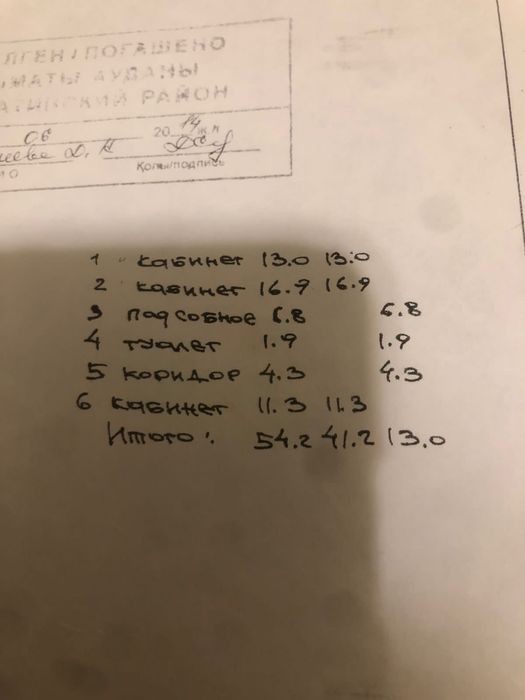 ЛГЕН / ПОГАШЕНО
МАТЫ АУДАНЫ
АТИНСКИЙ РАЙОН
06 2014 ж/г
Д. Н
Қолы/подпись
1 кабинет 13.0 13.0
2 кабинет 16.9 16.9
3 подсобное 6.8 6.8
4 туалет 1.9 1.9
5 коридор 4.3 4.3
6 кабинет 11.3 11.3
Итого: 54.2 41.2 13.0